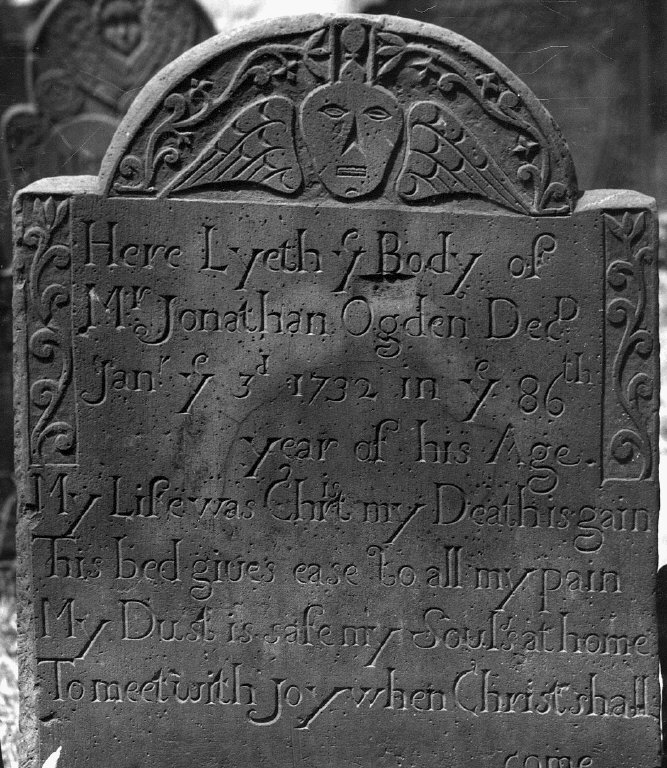 Here Lyeth yᵉ Body of
Mʳ Jonathan Ogden Decᴰ
Janʳ yᵉ 3ᵈ 1732 in yᵉ 86ᵗʰ
year of his Age.
My Life was Chrⁱˢt my Death is gain
This bed giues ease to all my pain
My Dust is safe my Soul's at home
To meet with Joy when Christ shall
come